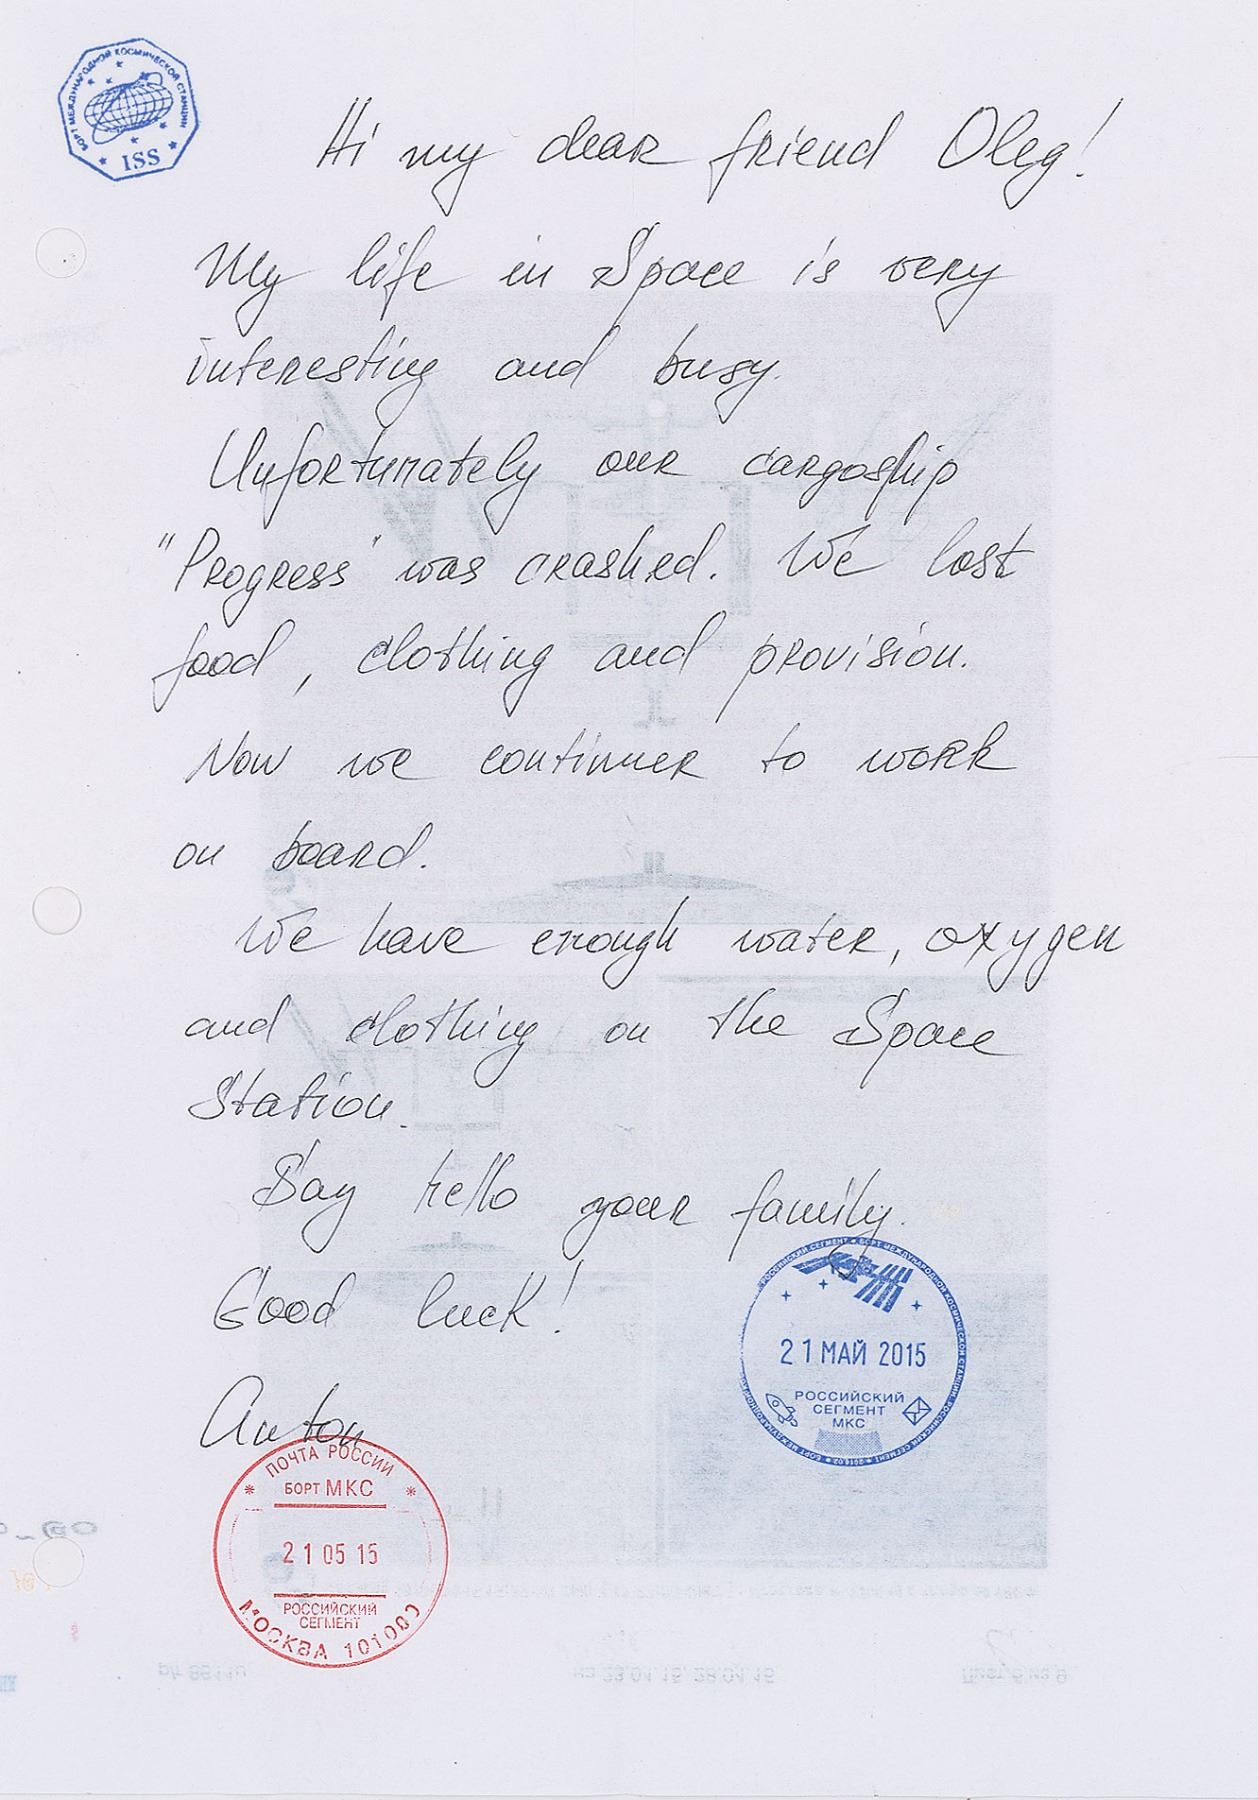 БОРТ МЕЖДУНАРОДНОЙ КОСМИЧЕСКОЙ СТАНЦИИ
ISS
Hi my dear friend Oleg!
My life in Space is very
interesting and busy.
Unfortunately our cargoship
"Progress" was crashed. We lost
food, clothing and provision.
Now we continuer to work
on board.
We have enough water, oxygen
and clothing on the Space
Station.
Say hello your family.
Good luck!
Anton
РОССИЙСКИЙ СЕГМЕНТ БОРТ МЕЖДУНАРОДНОЙ КОСМИЧЕСКОЙ СТАНЦИИ
21 МАЙ 2015
РОССИЙСКИЙ
СЕГМЕНТ
МКС
ПОЧТА РОССИИ
БОРТ МКС
21 05 15
РОССИЙСКИЙ
СЕГМЕНТ
МОСКВА 101000